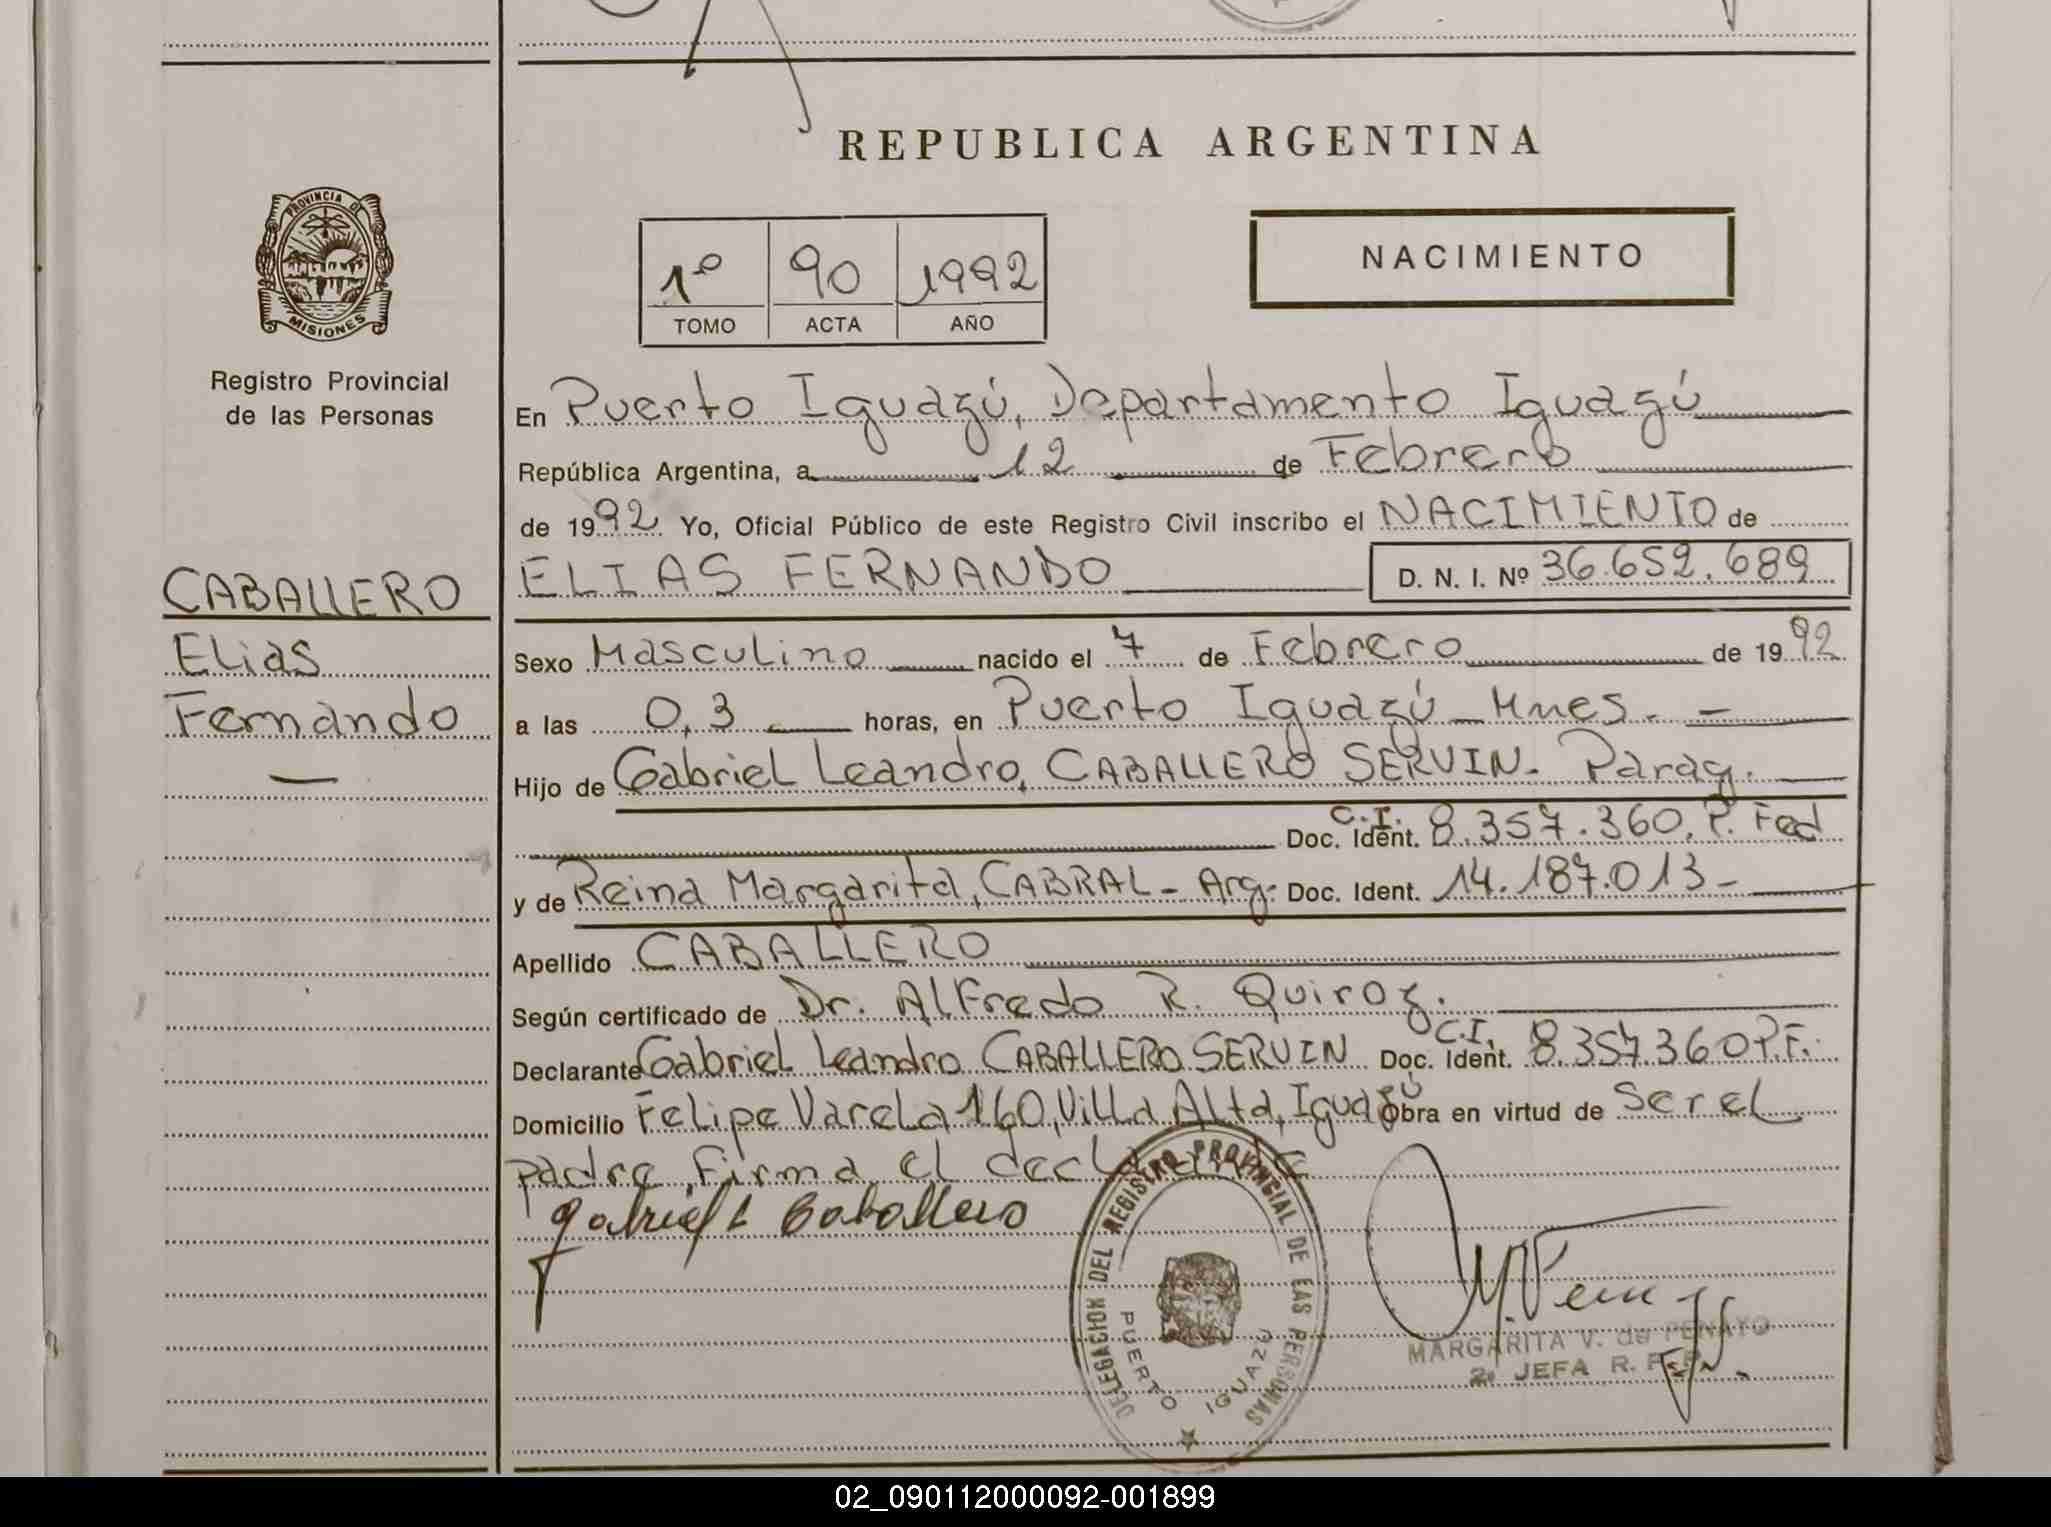 REPUBLICA ARGENTINA
PROVINCIA DE
MISIONES
Registro Provincial
de las Personas
1º 90 1992
TOMO ACTA AÑO
NACIMIENTO
En Puerto Iguazú, Departamento Iguazú
República Argentina, a 12 de Febrero
de 1992 Yo, Oficial Público de este Registro Civil inscribo el NACIMIENTO de
CABALLERO
Elias
Fernando
ELIAS FERNANDO D. N. I. Nº 36.652.689
Sexo Masculino nacido el 7 de Febrero de 1992
a las 0,3 horas, en Puerto Iguazú - Mnes. -
Hijo de Gabriel Leandro, CABALLERO SERVIN - Parag.
C.I.
Doc. Ident. 8.357.360. P. Fed
y de Reina Margarita, CABRAL - Arg: Doc. Ident. 14.187.013 -
Apellido CABALLERO
Según certificado de Dr. Alfredo R. Quiroz.
C.I.
Declarante Gabriel Leandro CABALLERO SERVIN Doc. Ident. 8.357.360 P.F.
Domicilio Felipe Varela 160, Villa Alta, Iguazú Obra en virtud de Ser el
padre, firma el declarante
Gabriel L Caballero
DELEGACION DEL REGISTRO PROVINCIAL DE LAS PERSONAS
PUERTO IGUAZU
MARGARITA V. de PENAYO
2º JEFA R. P. P.
02_090112000092-001899